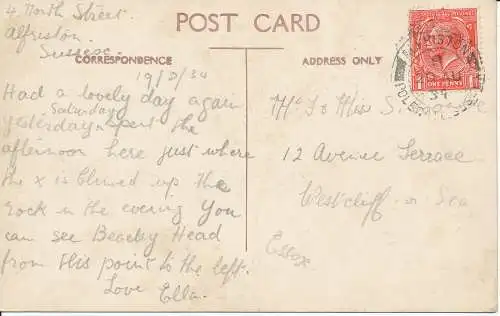 4. North Street.
Alfriston
Sussex.
POST CARD
CORRESPONDENCE
ADDRESS ONLY
19/8/34
Had a lovely day again
Saturday
yesterday spent the
afternoon here just where
the x is climed up the
rock in the evening You
can see Beachy Head
from this point to the left.
Love Ella.
Miss S.
12 Avenue Terrace
Westcliff on Sea
Essex
ALFRISTON
34
POLEGATE, SUSSEX
ONE PENNY